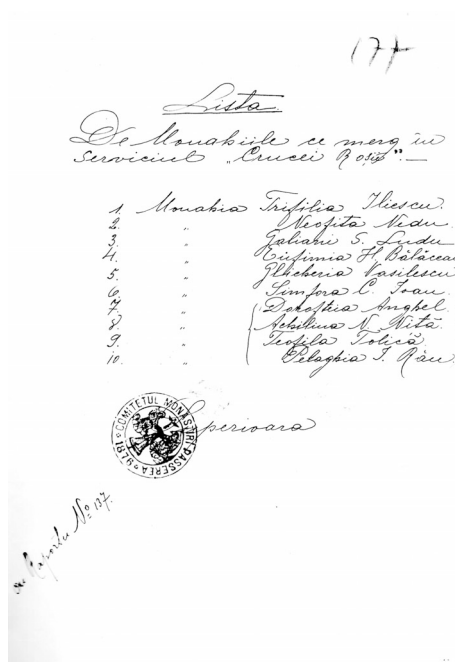 177
Lista
De Monahiile ce merg în
serviciul „Crucei Roșie”. —
1. Monahia Trifilia Iliescu.
2. " Neofita Nedu.
3. " Galiani S. Dudu
4. " Eufimia H. Bălăcean
5. " Glicheria Vasilescu
6. " Simfora C. Ioan.
7. " Dorofteia Anghel.
8. " Achilina N. Niță.
9. " Teofila Tolică.
10. " Pelaghia I. Rău.
Superioara
COMITETUL MONASTIRI PASSEREA 1876
Raportu No: 137.